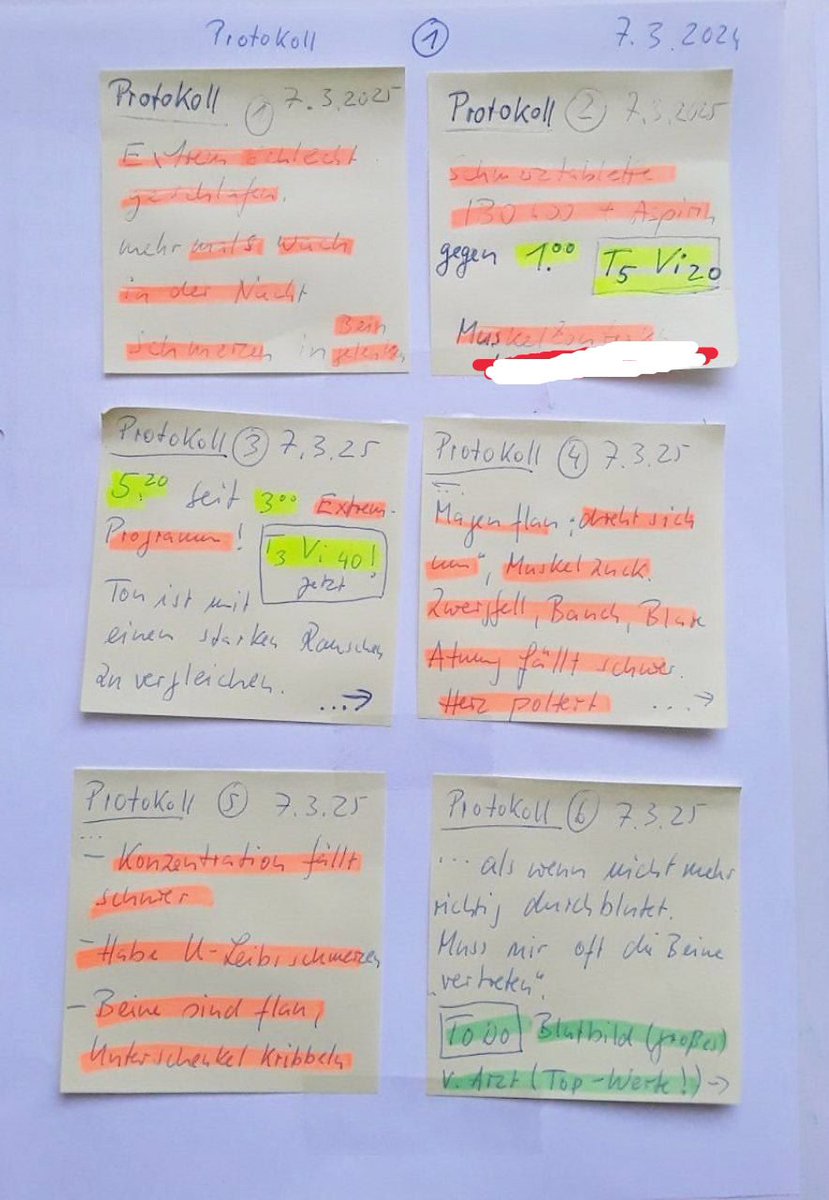 Protokoll 1 7.3.2024
Protokoll 1 7.3.2025
Extrem schlecht
geschlafen.
mehrmals wach
in der Nacht
Schmerzen in Bein
gelenken
Protokoll 2 7.3.2025
Schmerztablette
+ Aspirin
gegen 1.00 T5 Vi20
Protokoll 3 7.3.25
5.20 seit 3.00 Extrem-
Programm!
T3 Vi 40!
jetzt
Ton ist mit
einen starken Rauschen
zu vergleichen.
...→
Protokoll 4 7.3.25
...
Magen flau, „dreht sich
um“, Muskelzuck.
Zwergfell, Bauch, Blase
Atmung fällt schwer.
Herz poltert ...→
Protokoll 5 7.3.25
...
- Konzentration fällt
schwer
- Habe U-Leibsschmerzen
- Beine sind flau,
Unterschenkel Kribbeln
Protokoll 6 7.3.25
... als wenn nicht mehr
richtig durchblutet.
Muss mir oft die Beine
„vertreten“.
To Do Blutbild (großes)
v. Arzt (Top-Werte!) →